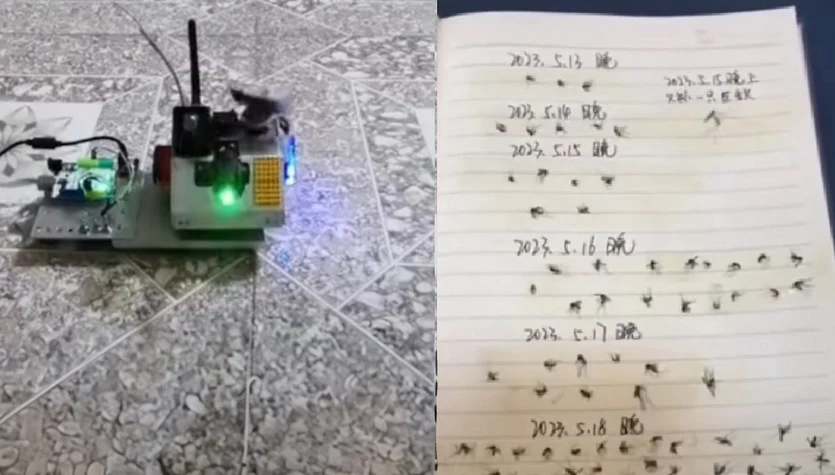 2023. 5.13 晚
2023. 5.15 晚上
又补一只
2023. 5.14 晚
2023. 5.15 晚
2023. 5.16 晚
2023. 5.17 晚
2023. 5.18 晚